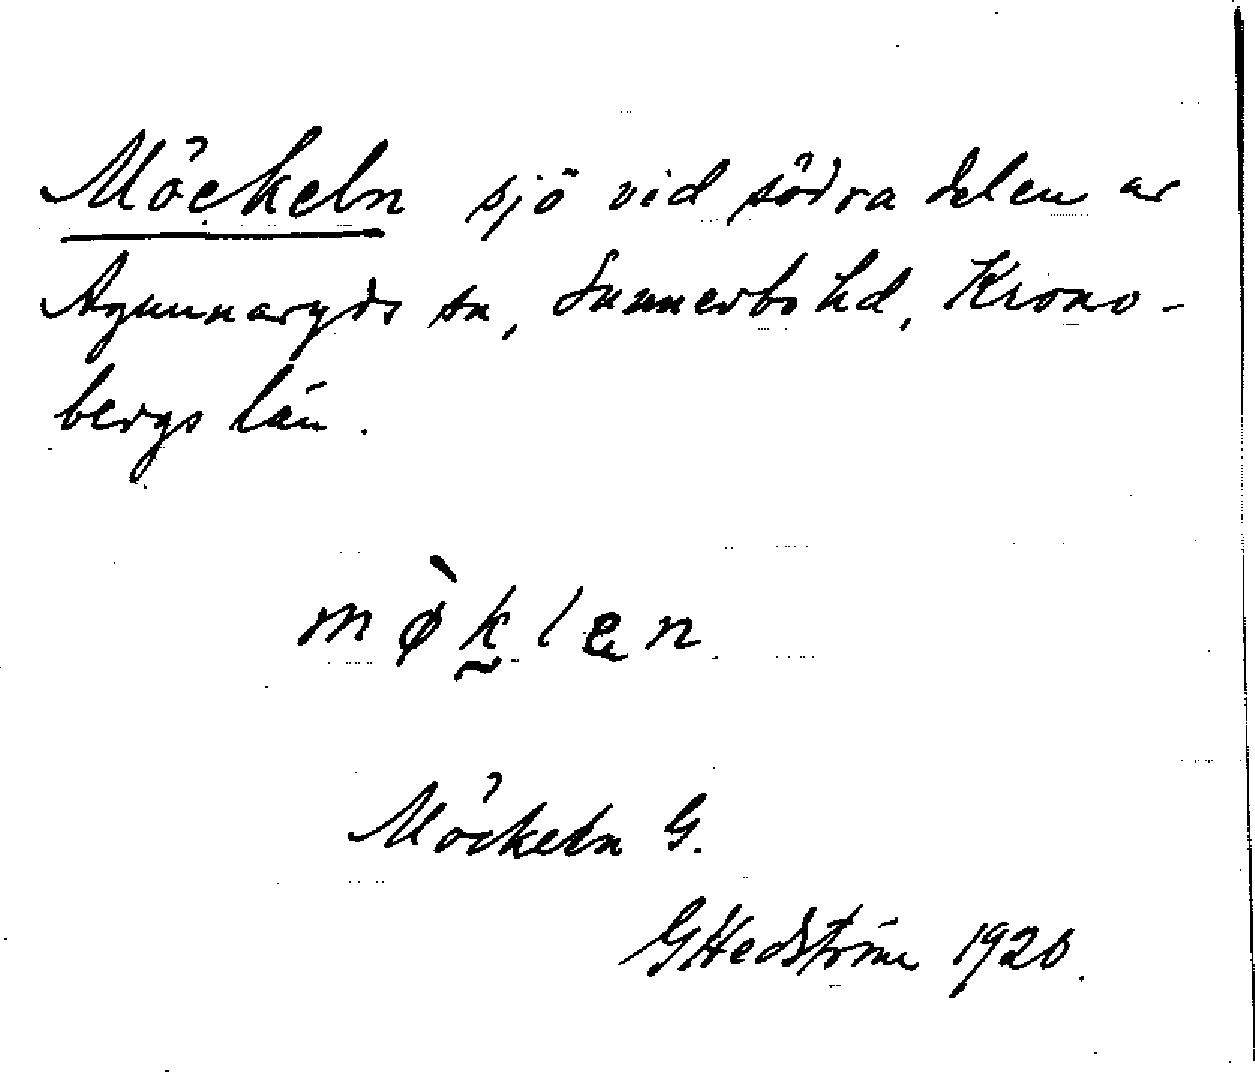 Möckeln sjö vid södra delen av
Agunnaryds sn, Sunnerbo hd, Krono-
bergs län.
mø̀klen
Möckeln G.
GHedström 1920.